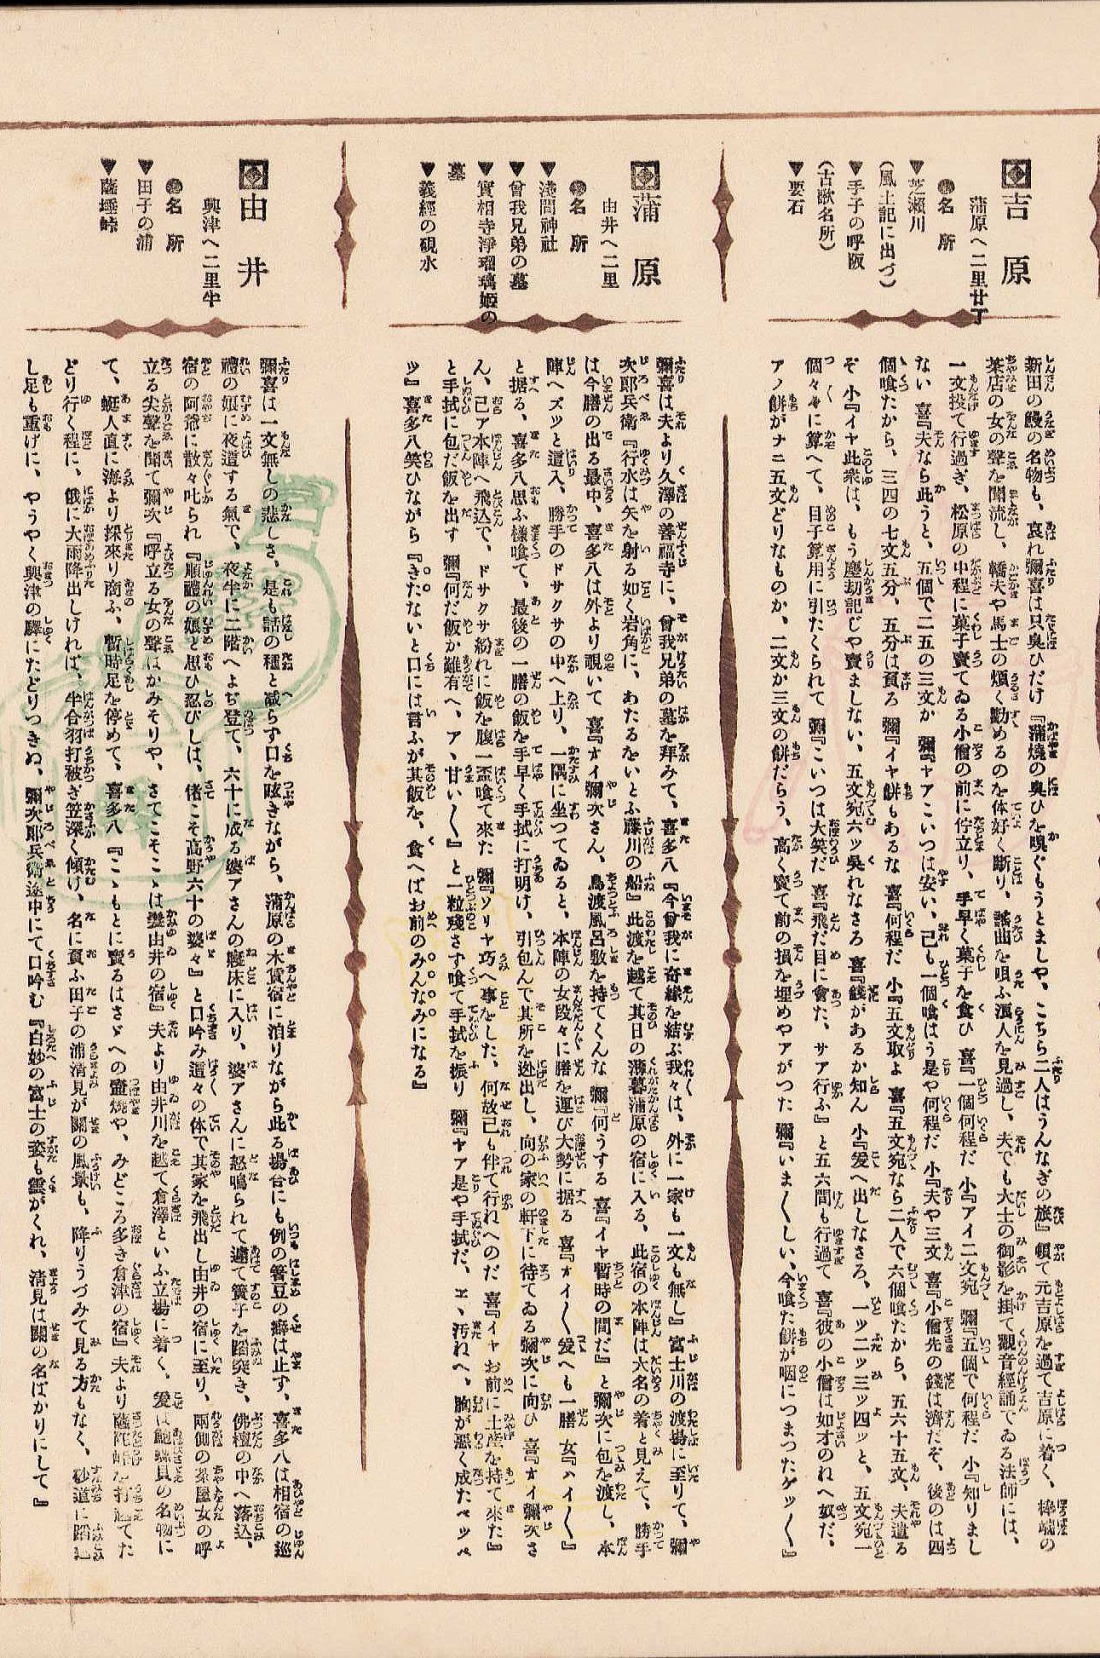 吉原
蒲原へ二里廿丁
●名所
▼芝瀬川
(風土記に出づ)
▼手子の呼阪
(古歌名所)
▼要石
新田の鰻の名物も、哀れ彌喜は只臭ひだけ『蒲燒の臭ひを嗅ぐもうとましや、こちら二人はうんなぎの旅』頓て元吉原を過て吉原に着く、棒端の
茶店の女の聲を聞流し、轎夫や馬士の煩く勸めるのを体好く斷り、謠曲を唄ふ浪人を見過し、夫でも大士の御影を掛て觀音經誦でゐる法師には、
一文投て行過ぎ、松原の中程に菓子賣てゐる小僧の前に佇立り、手早く菓子を食ひ 喜『一個何程だ 小『アイ二文宛 彌『五個で何程だ 小『知りまし
ない 喜『夫なら此うと、五個で二五の三文か 彌『ヤアこいつは安い、己も一個喰はう是や何程だ 小『夫や三文 喜『小僧先の錢は濟だぞ、後のは四
個喰たから、三四の七文五分、五分は負ろ 彌『イヤ餅もあるな 喜『何程だ 小『五文取よ 喜『五文宛なら二人で六個喰たから、五六十五文、夫遣る
ぞ 小『イヤ此衆は、もう塵劫記じや賣ましない、五文宛六ッ呉れなさろ 喜『錢があるか知ん 小『爰へ出しなさろ、一ッ二ッ三ッ四ッと、五文宛一
個々々に算へて、目子算用に引たくられて 彌『こいつは大笑だ 喜『飛だ目に會た、サア行ふ』と五六間も行過て 喜『彼の小僧は如才のねへ奴だ、
アノ餅がナニ五文どりなものか、二文か三文の餅だらう、高く賣て前の損を埋めやアがつた 彌『いま〱しい、今喰た餅が咽につまつたゲッ〱』
蒲原
由井へ二里
●名所
淺間神社
▼曾我兄弟の墓
▼實相寺淨瑠璃姫の
墓
▼義經の硯水
彌喜は夫より久澤の善福寺に、曾我兄弟の墓を拜みて、喜多八『今曾我に奇縁を結ぶ我々は、外に一家も一文も無し』富士川の渡場に至りて、彌
次郎兵衛『行水は矢を射る如く岩角に、あたるをいとふ藤川の船』此渡を越て其日の薄暮蒲原の宿に入る、此宿の本陣は大名の着と見えて、勝手
は今膳の出る最中、喜多八は外より覗いて 喜『オイ彌次さん、鳥渡風呂敷を持てくんな 彌『何うする 喜『イヤ暫時の間だ』と彌次に包を渡し、本
陣へズッと這入、勝手のドサクサの中へ上り、一隅に坐つてゐると、本陣の女段々に膳を運び大勢に据る 喜『オイ〱爰へも一膳 女『ハイ〱』
と据る、喜多八思ふ樣喰て、最後の一膳の飯を手早く手拭に打明け、引包んで其所を迯出し、向の家の軒下に待てゐる彌次に向ひ 喜『オイ彌次さ
ん、己ア本陣へ飛込で、ドサクサ紛れに飯を腹一盃喰て來た 彌『ソリヤ巧へ事をした、何故己も伴て行ねへのだ 喜『イヤお前に土産を持て來た』
と手拭に包だ飯を出す 彌『何だ飯か難有へ、アヽ甘い〱』と一粒殘さず喰て手拭を振り 彌『ヤア是や手拭だ、エヽ汚ねへ、胸が惡く成たペッペ
ッ』喜多八笑ひながら『きたないと口には言ふが其飯を、食へばお前のみんなみになる』
由井
興津へ二里半
●名所
▼田子の浦
▼薩埵峠
彌喜は一文無しの悲しさ、是も話の種と减らず口を呟きながら、蒲原の木賃宿に泊りながら此る場合にも例の箸豆の癖は止ず、喜多八は相宿の巡
禮の娘に夜這する氣で、夜半に二階へよぢ登て、六十に成る婆アさんの寢床に入り、婆アさんに怒鳴られて遽て簀子を踏突き、佛檀の中へ落込、
宿の阿爺に散々叱られ『順禮の娘と思ひ忍びしは、偖こそ高野六十の婆々』と口吟み這々の体で其家を飛出し由井の宿に至り、兩側の茶屋女の呼
立る尖聲を聞て彌次『呼立る女の聲はかみそりや、さてこそこゝは髮由井の宿』夫より由井川を越て倉澤といふ立場に着く、爰は鮑螺貝の名物に
て、蜑人直に海より採來り商ふ、暫時足を停めて、喜多八『こゝもとに賣るはさゞへの壷燒や、みどころ多き倉津の宿』夫より薩陀峠を打越てた
どり行く程に、俄に大雨降出しければ、半合羽打被ぎ笠深く傾け、名に負ふ田子の浦清見が關の風景も、降りうづみて見る方もなく、砂道に踏込
し足も重げに、やうやく興津の驛にたどりつきぬ、彌次郎兵衛途中にて口吟む『白妙の富士の姿も雲がくれ、清見は關の名ばかりにして』